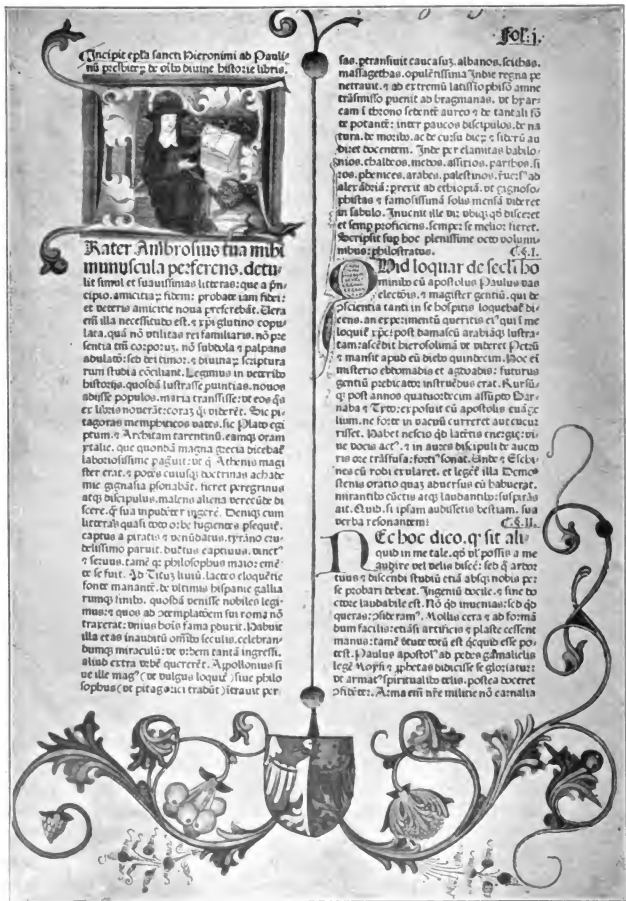 Fol. j.
Incipit epła sancti Hieronimi ad Pauli-
nū presbiteꝝ de oībꝰ divine historie libris.
Frater Ambrosius tua mihi
munuscula perferens. detu-
lit simul et suavissimas litteras: que a prin-
cipio. amicitiaꝝ fidem: probate iam fidei:
et veteris amicitie noua preferebāt. Uera
em̄ illa necessitudo est. ⁊ xp̄i glutino copu-
lata. quā nō vtilitas rei familiaris. nō pre
sentia tm̄ corporuꝫ. nō subdola ⁊ palpans
adulatō: sed dei timor. ⁊ diuinaꝝ scriptura
rum studia cōciliant. Legimus in veterib᷒
historijs. quosdā lustrasse puintias. nouos
adisse populos. maria transisse: vt eos qͦs
ex libris nouerāt: coraꝫ qͦꝫ viderēt. Sic pi-
tagoras memphiticos vates. sic Plato egi
ptum. ⁊ Architam tarentinū. eamqꝫ oram
ytalie. que quondā magna grecia dicebat̄
laboriosissime pagiuit: vt qͥ Athenis magi
ster erat. ⁊ potēs cuiusqꝫ doctrinas achade
mie gignasia psonabāt. fieret peregrinus
atqꝫ discipulus. malens aliena verecūde di
scere. qͣꝫ sua impudēter ingerē. Deniqꝫ cum
litteras quasi toto orbe fugientes psequit̄.
captus a piratis ⁊ venūdatus. tyrāno cru-
delissimo paruit. ductus captiuus. vinctꝰ
⁊ seruus. tamē qꝫ philosophus maior emē-
te se fuit. Ad Titūꝫ liuiū. lacteo eloquētie
fonte manantē. de vltimis hispanie gallia
rumqꝫ finibꝰ. quosdā venisse nobiles legi-
mus: ⁊ quos ad ɔtemplatōem sui roma nō
traxerat: vnius hoīs fama pduxit. Habuit
illa etas inauditū oīībꝰ seculis. celebran-
dumqꝫ miraculū: vt vrbem tantā ingressi.
aliud extra vrbē quererēt. Apollonius si
ue ille magꝰ (vt vulgus loquit̄) siue philo
sophus (vt pitagorici tradūt) ītrauit per
sas. ptransiuit caucasuꝫ. albanos. scithas.
massagethas. opulētissima Indie regna pe
netrauit. ⁊ ad extremū latissiō phisō amne
trāsmisso puenit ad bragmanas. vt hyar-
cam ī throno sedentē aureo ⁊ de tantali fō
te potantē: inter paucos discipulos. de na
tura. de moribꝰ. ac de cursu dieꝝ ⁊ siderū au
diret docentem. Inde per elamitas babilo-
nios. chaldeos. medos. assirios. parthos. si
ros. phenices. arabes. palestinos. reuersꝰ ad
alexādriā: prexit ad ethiopiā. vt gignoso-
phistas ⁊ famosissimā solis mensā videret
in sabulo. Inuenit ille vir vbiqꝫ qͦ disceret
et semp proficiens. semper se melior fieret.
Scripsit sup hoc plenissime octo volumi-
nibus: philostratus. C.§.I.
Quid loquar de secli ho
minibꝰ cū apostolus Paulus vas
electōis. ⁊ magister gentiū. qui de
ɔscientia tanti in se hospitis loquebat̄ di-
cens. an experimētū queritis eiꝰ qui ī me
loquit̄ xp̄c: post damascū arabiāqꝫ lustra-
tam: ascēdit hierosolimā vt videret Petrū
⁊ mansit apud eū diebꝰ quindecim. Hoc em̄
misterio ebdomadis et ogdoadis: futurus
gentiū predicator instruēdus erat. Rursūqꝫ
post annos quatuordecim assūpto Bar-
naba ⁊ Tyto: exposuit cū apostolis euāge
lium. ne forte in vacuū curreret aut cucur
risset. Habet nescio qͥd latētis energie: vi-
ue vocis actꝰ. ⁊ in aures discipuli de aucto
ris ore trāsfusa: fortiꝰ sonat. Unde ⁊ Eschi-
nes cū rodi exularet. et legeret̄ illa Demo
stenis oratio quaꝫ aduersus eū habuerat.
mirantibꝰ cūctis atqꝫ laudantibꝰ: suspirās
ait. Quid. si ipsam audissetis bestiam. sua
verba resonantem? C.§.II.
Nec hoc dico. qꝫ sit ali-
quid in me tale. qd̄ vl̓ possis a me
audire vel velis discē: sed qͦ ardor
tuus ⁊ discendi studiū etiā absqꝫ nobis per
se probari debeat. Ingeniū docile. ⁊ sine do
ctore laudabile est. Nō qͥd inuenias: sed qͥd
queras: ɔsideramꝰ. Mollis cera ⁊ ad formā
dum facilis: etiāsi artificis ⁊ plaste cessent
manus: tamē tutē totū est qͥcquid esse po-
test. Paulus apostolꝰ ad pedes gamalielis
legē Moysi ⁊ ꝓphetas didicisse se gloriatur:
vt armatꝰ spiritualibꝰ telis. postea doceret
ɔfidēter. Arma em̄ nr̄e militie nō carnalia